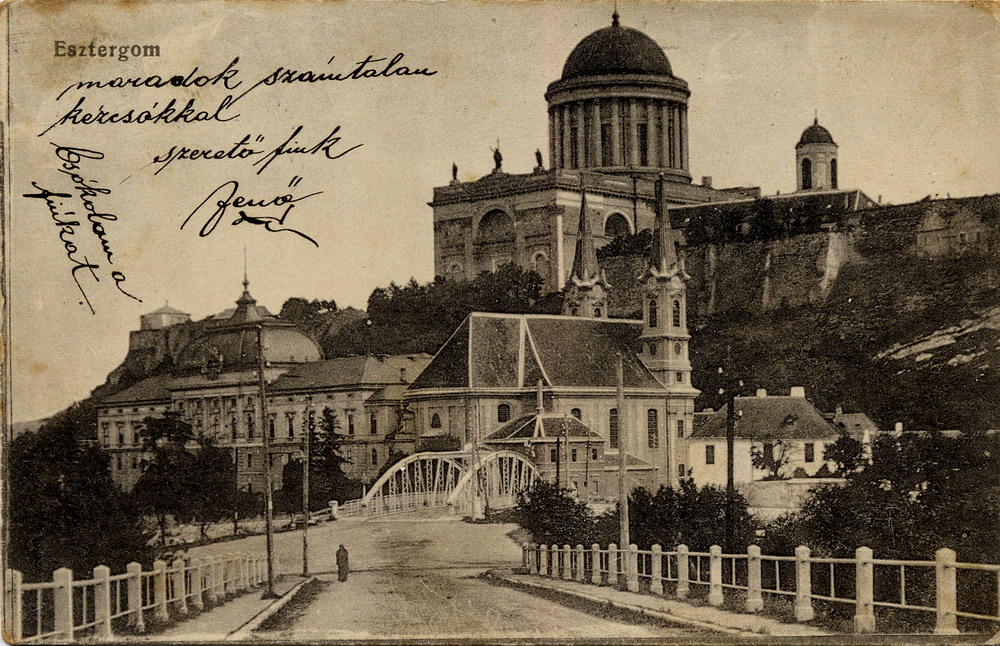 Esztergom
maradok számtalan
kézcsókkal
szerető fiuk
Jenő
Csókolom a
fiúkat.